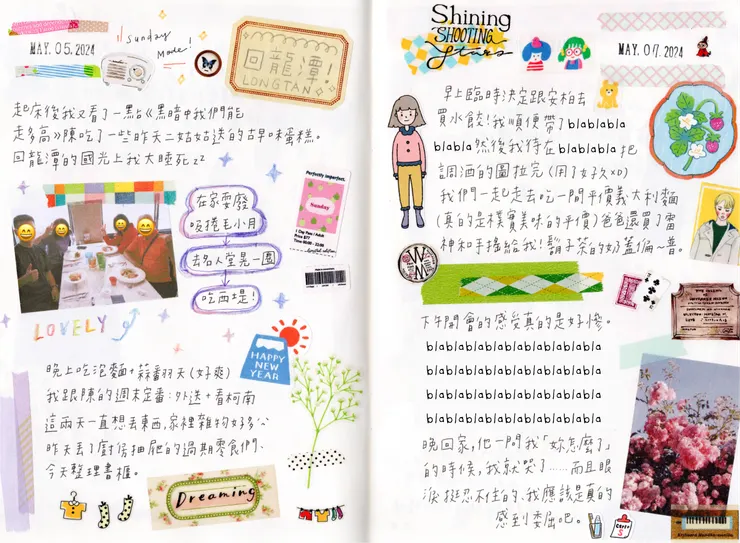 MAY. 05. 2024
Sunday
Mode!
回龍潭!
LONGTAN
起床後我又看了一點《黑暗中我們能
走多高》陳吃了一些昨天二姑姑送的古早味蛋糕。
回龍潭的國光上我大睡死zz
在家耍廢
吸捲毛小月
去名人堂晃一圈
吃西堤!
Perfectly imperfect.
Sunday
LOVELY
HAPPY
NEW
YEAR
晚上吃泡麵+蒜番羽天(好爽)
我跟陳的週末定番:外送+看柯南
這兩天一直想丟東西,家裡雜物好多公
昨天丟了廚房抽屜的過期零食們、
今天整理書櫃。
Dreaming
Shining
SHOOTING
Stars
MAY. 07. 2024
早上臨時決定跟安柏去
買水餃!我順便帶了blablabla
blabla然後我待在blablabla把
調酒的圖拉完(用了好久xD)
我們一起走去吃一間平價義大利麵
(真的是樸實美味的平價)爸爸還買了雷
神和手搖給我!鬍子茶的奶蓋偏一普。
W
下午開會的感受真的是好慘。
blablablablablablablablablabla
blablablablablablablablablabla
blablablablablablablablablabla
blablablablablablablablablabla
晚回家,他一問我「妳怎麼了」
的時候,我就哭了……而且眼
淚挺忍不住的、我應該是真的
感到委屈吧。